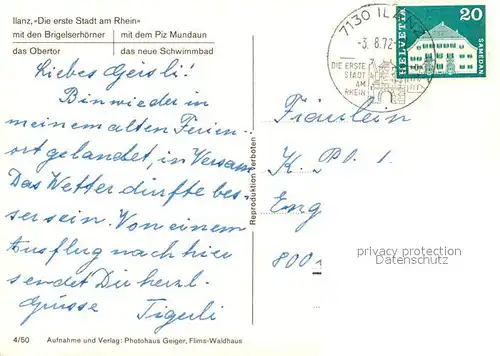 Ilanz, «Die erste Stadt am Rhein»
mit den Brigelserhörner mit dem Piz Mundaun
das Obertor das neue Schwimmbad
7130 ILANZ
-3. 8.72
DIE ERSTE
STADT
AM
RHEIN
HELVETIA
20
SAMEDAN
Liebes Geisli!
Bin wieder in
meinem alten Ferien-
ort gelandet, in Versam
Das Wetter dürfte bes-
ser sein. Von einem
Ausflug nach hier
sendet Dir herzl.
Grüsse Tigerli
Reproduktion verboten
Fräulein
K.
Eng
8001
privacy protection
Datenschutz
4/50 Aufnahme und Verlag: Photohaus Geiger, Flims-Waldhaus